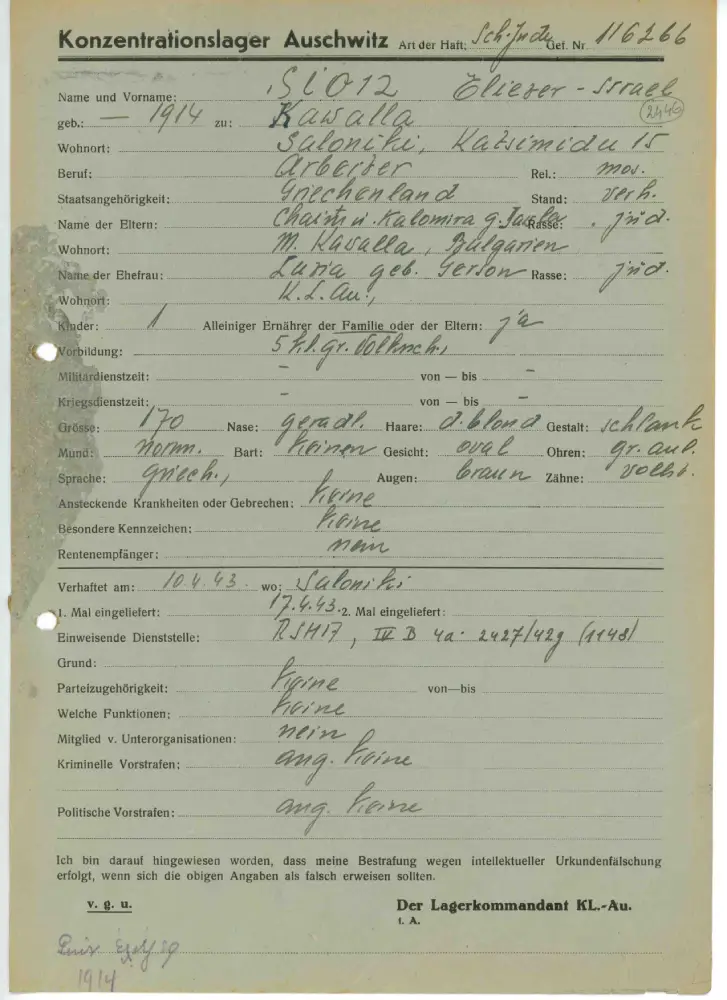 Konzentrationslager Auschwitz Art der Haft: Sch. Jude Gef. Nr. 116266
Name und Vorname: Eliezer - Israel
(2446)
geb.: — 1914 zu: Kawalla
Wohnort: Saloniki, 15
Beruf: Arbeiter Rel.: mos.
Staatsangehörigkeit: Griechenland Stand: verh.
Name der Eltern: Chaim u. Kalomira g. Rasse: jüd.
Wohnort: M. Kavalla, Bulgarien
Name der Ehefrau: Luria geb. Gerson Rasse: jüd.
Wohnort: K.L. Au.,
Kinder: 1 Alleiniger Ernährer der Familie oder der Eltern: ja
Vorbildung: 5 kl. gr. Volksch.,
Militärdienstzeit: – von — bis –
Kriegsdienstzeit: – von — bis –
Grösse: 170 Nase: geradl. Haare: d. blond Gestalt: schlank
Mund: norm. Bart: keinen Gesicht: oval Ohren: gr. anl.
Sprache: griech., Augen: braun Zähne: vollst.
Ansteckende Krankheiten oder Gebrechen: keine
Besondere Kennzeichen: keine
Rentenempfänger: nein
Verhaftet am: 10.4.43. wo: Saloniki
1. Mal eingeliefert: 17.4.43. 2. Mal eingeliefert:
Einweisende Dienststelle: RSHA, IV B 4a 2427/42g (1148)
Grund:
Parteizugehörigkeit: keine von—bis
Welche Funktionen: keine
Mitglied v. Unterorganisationen: nein
Kriminelle Vorstrafen: ang. keine
Politische Vorstrafen: ang. keine
Ich bin darauf hingewiesen worden, dass meine Bestrafung wegen intellektueller Urkundenfälschung
erfolgt, wenn sich die obigen Angaben als falsch erweisen sollten.
v. g. u. Der Lagerkommandant KL.-Au.
I. A.
1914